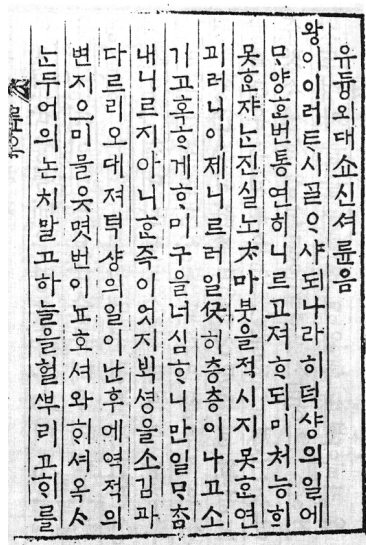 유듕외대쇼신셔륜음
왕이이러ᄐᆞ시ᄀᆞᆯᄋᆞ샤ᄃᆡ나라히덕샹의일에
ᄆᆡ양ᄒᆞᆫ번통연히니르고져ᄒᆞ되미처능히
못ᄒᆞᆫ쟈ᄂᆞᆫ진실노ᄎᆞ마붓을적시지못ᄒᆞᆫ연
괴러니이제니르러일ᄭᅳᆺ히층층이나고소
기고혹ᄒᆞ게ᄒᆞ미구을너심ᄒᆞ니만일ᄆᆞᄎᆞᆷ
내니르지아니ᄒᆞᆫ즉이엇지ᄇᆡᆨ셩을소김과
다르리오대져덕샹의일이난후에역적의
변지으미믈읏몃번이뇨호셔와ᄒᆡ셔옥ᄉᆞ
ᄂᆞᆫ두어의논치말고하ᄂᆞᆯ을헐ᄲᅮ리고ᄒᆡ를